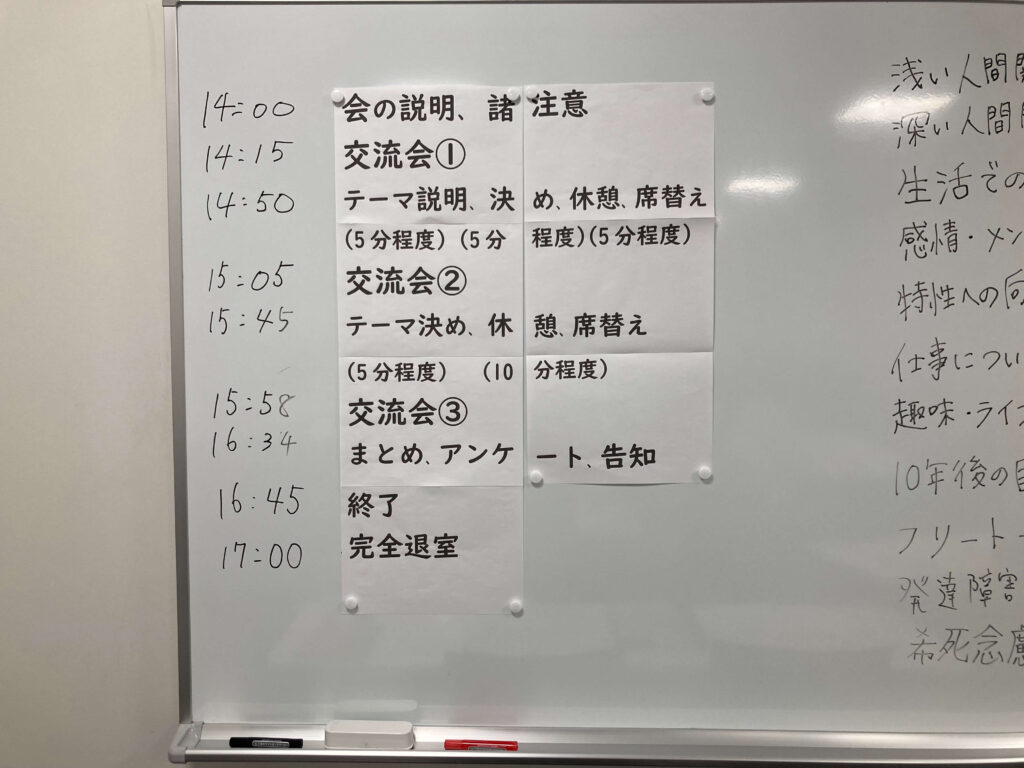 14:00 会の説明、諸注意
14:15 交流会①
14:50 テーマ説明、決め、休憩、席替え
(5分程度) (5分程度)(5分程度)
15:05 交流会②
15:45 テーマ決め、休憩、席替え
(5分程度) (10分程度)
15:58 交流会③
16:34 まとめ、アンケート、告知
16:45 終了
17:00 完全退室
浅い人間
深い人間
生活での
感情・メン
特性への向
仕事につい
趣味・ライ
10年後の
フリートー
発達障害
希死念慮